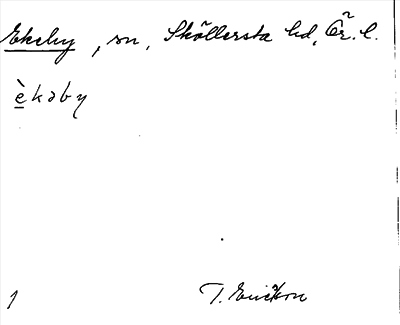 Ekeby, sn, Sköllersta hd, Ör. l.
èkəby
1
T. Ericson